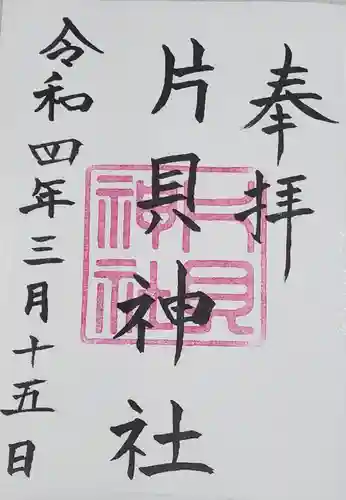 奉拝
片貝神社
片貝神社
令和四年三月十五日